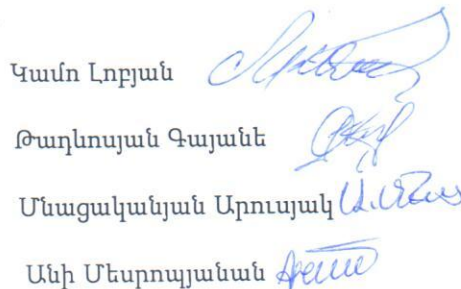 Կամո Լոբյան
Թադևոսյան Գայանե
Մնացականյան Արուսյակ
Անի Մեսրոպյանան